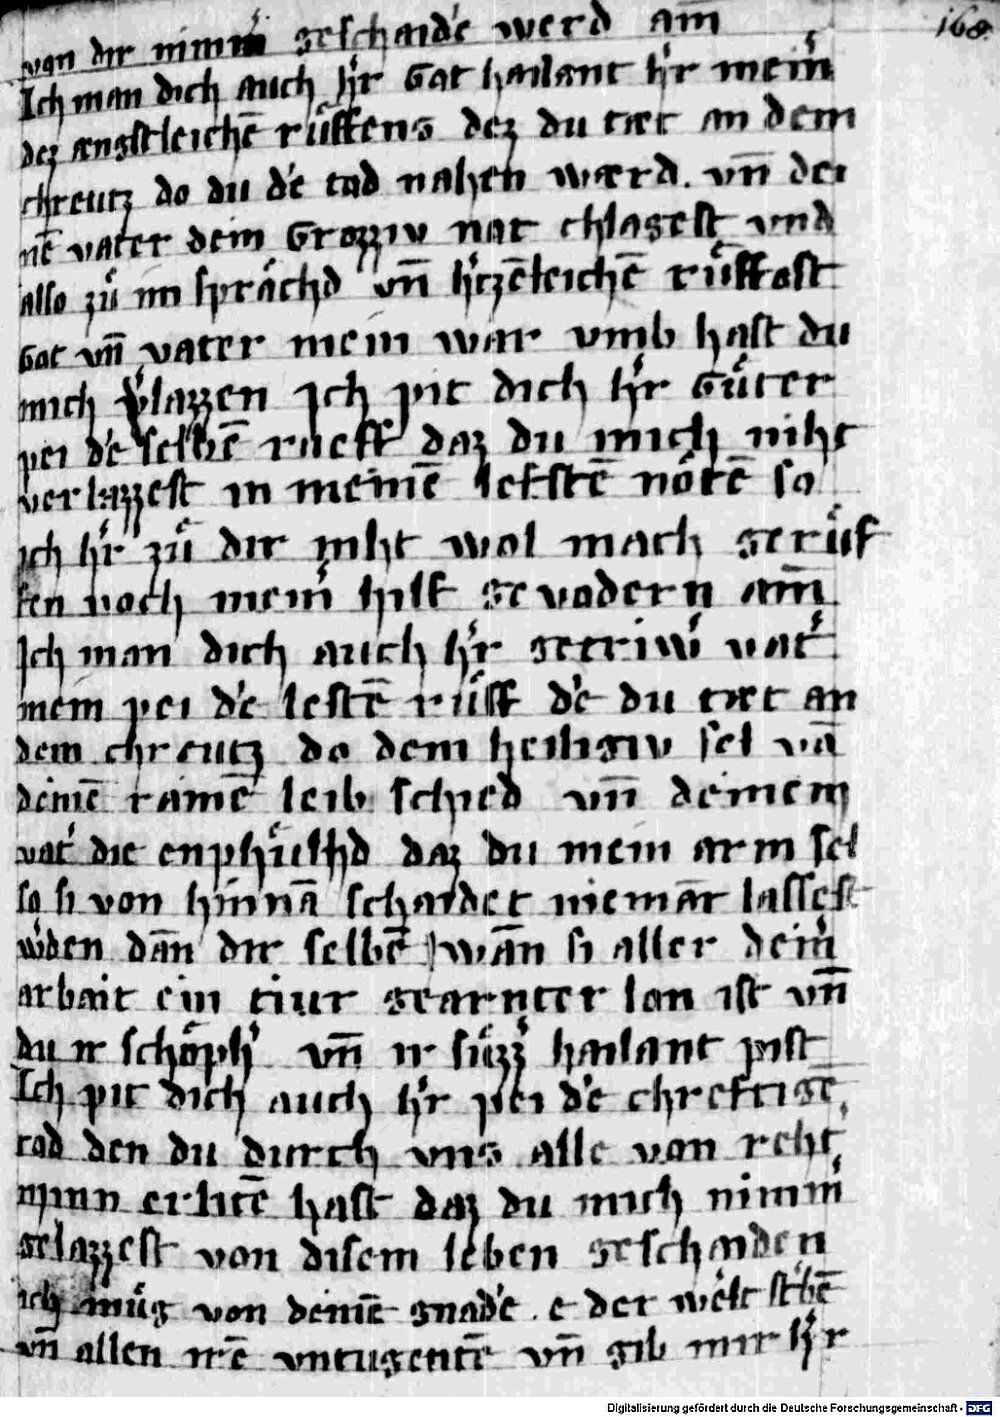 168.
von dir nimm̄ geschaid'e werd am̄
Ich man dich auch h'r Got hailant h'r mein'
dez ængstleichē růffens dez du tæt an dem
chreutz do du d'e tod nahen wærd. vn̄ dei
nē vater dein Grozziv not chlagest vnd
also zů im sprächd vn̄ h'tzēleichē růffast
Got vn̄ vater mein war vmb hast du
mich v'lazzen Ich pit dich h'r Gůter
pei d'e selbē rueff daz du mich niht
verlazzest in meinē letstē nötē so
ich h'r zů dir niht wol mach gerůf
fen noch mein' hilf gevodern am̄
Ich man dich auch h'r getriw' vat'
mein pei d'e lestē růff d'e du tæt an
dem chreutz do dem heiligiv sel vō
deinē rainē leib schied vn̄ deinem
vat' die enphůlhd daz du mein arm sel
so si von hinnā schaidet niemār lassest
w'den dān dir selbē wān si aller dein'
arbait ein tiur gearnter lon ist vn̄
du ir schöph' vn̄ ir süzz' hailant pist
Ich pit dich auch h'r pei d'e chreftigē
tod den du durch vns alle von reht'
minn erlitē hast daz du mich nimm'
gelazzest von disem leben geschaiden
ich müg von deinē gnad'e e der welt st'bē
vn̄ allen irē vntugentē vn̄ gib mir h'r
Digitalisierung gefördert durch die Deutsche Forschungsgemeinschaft - DFG